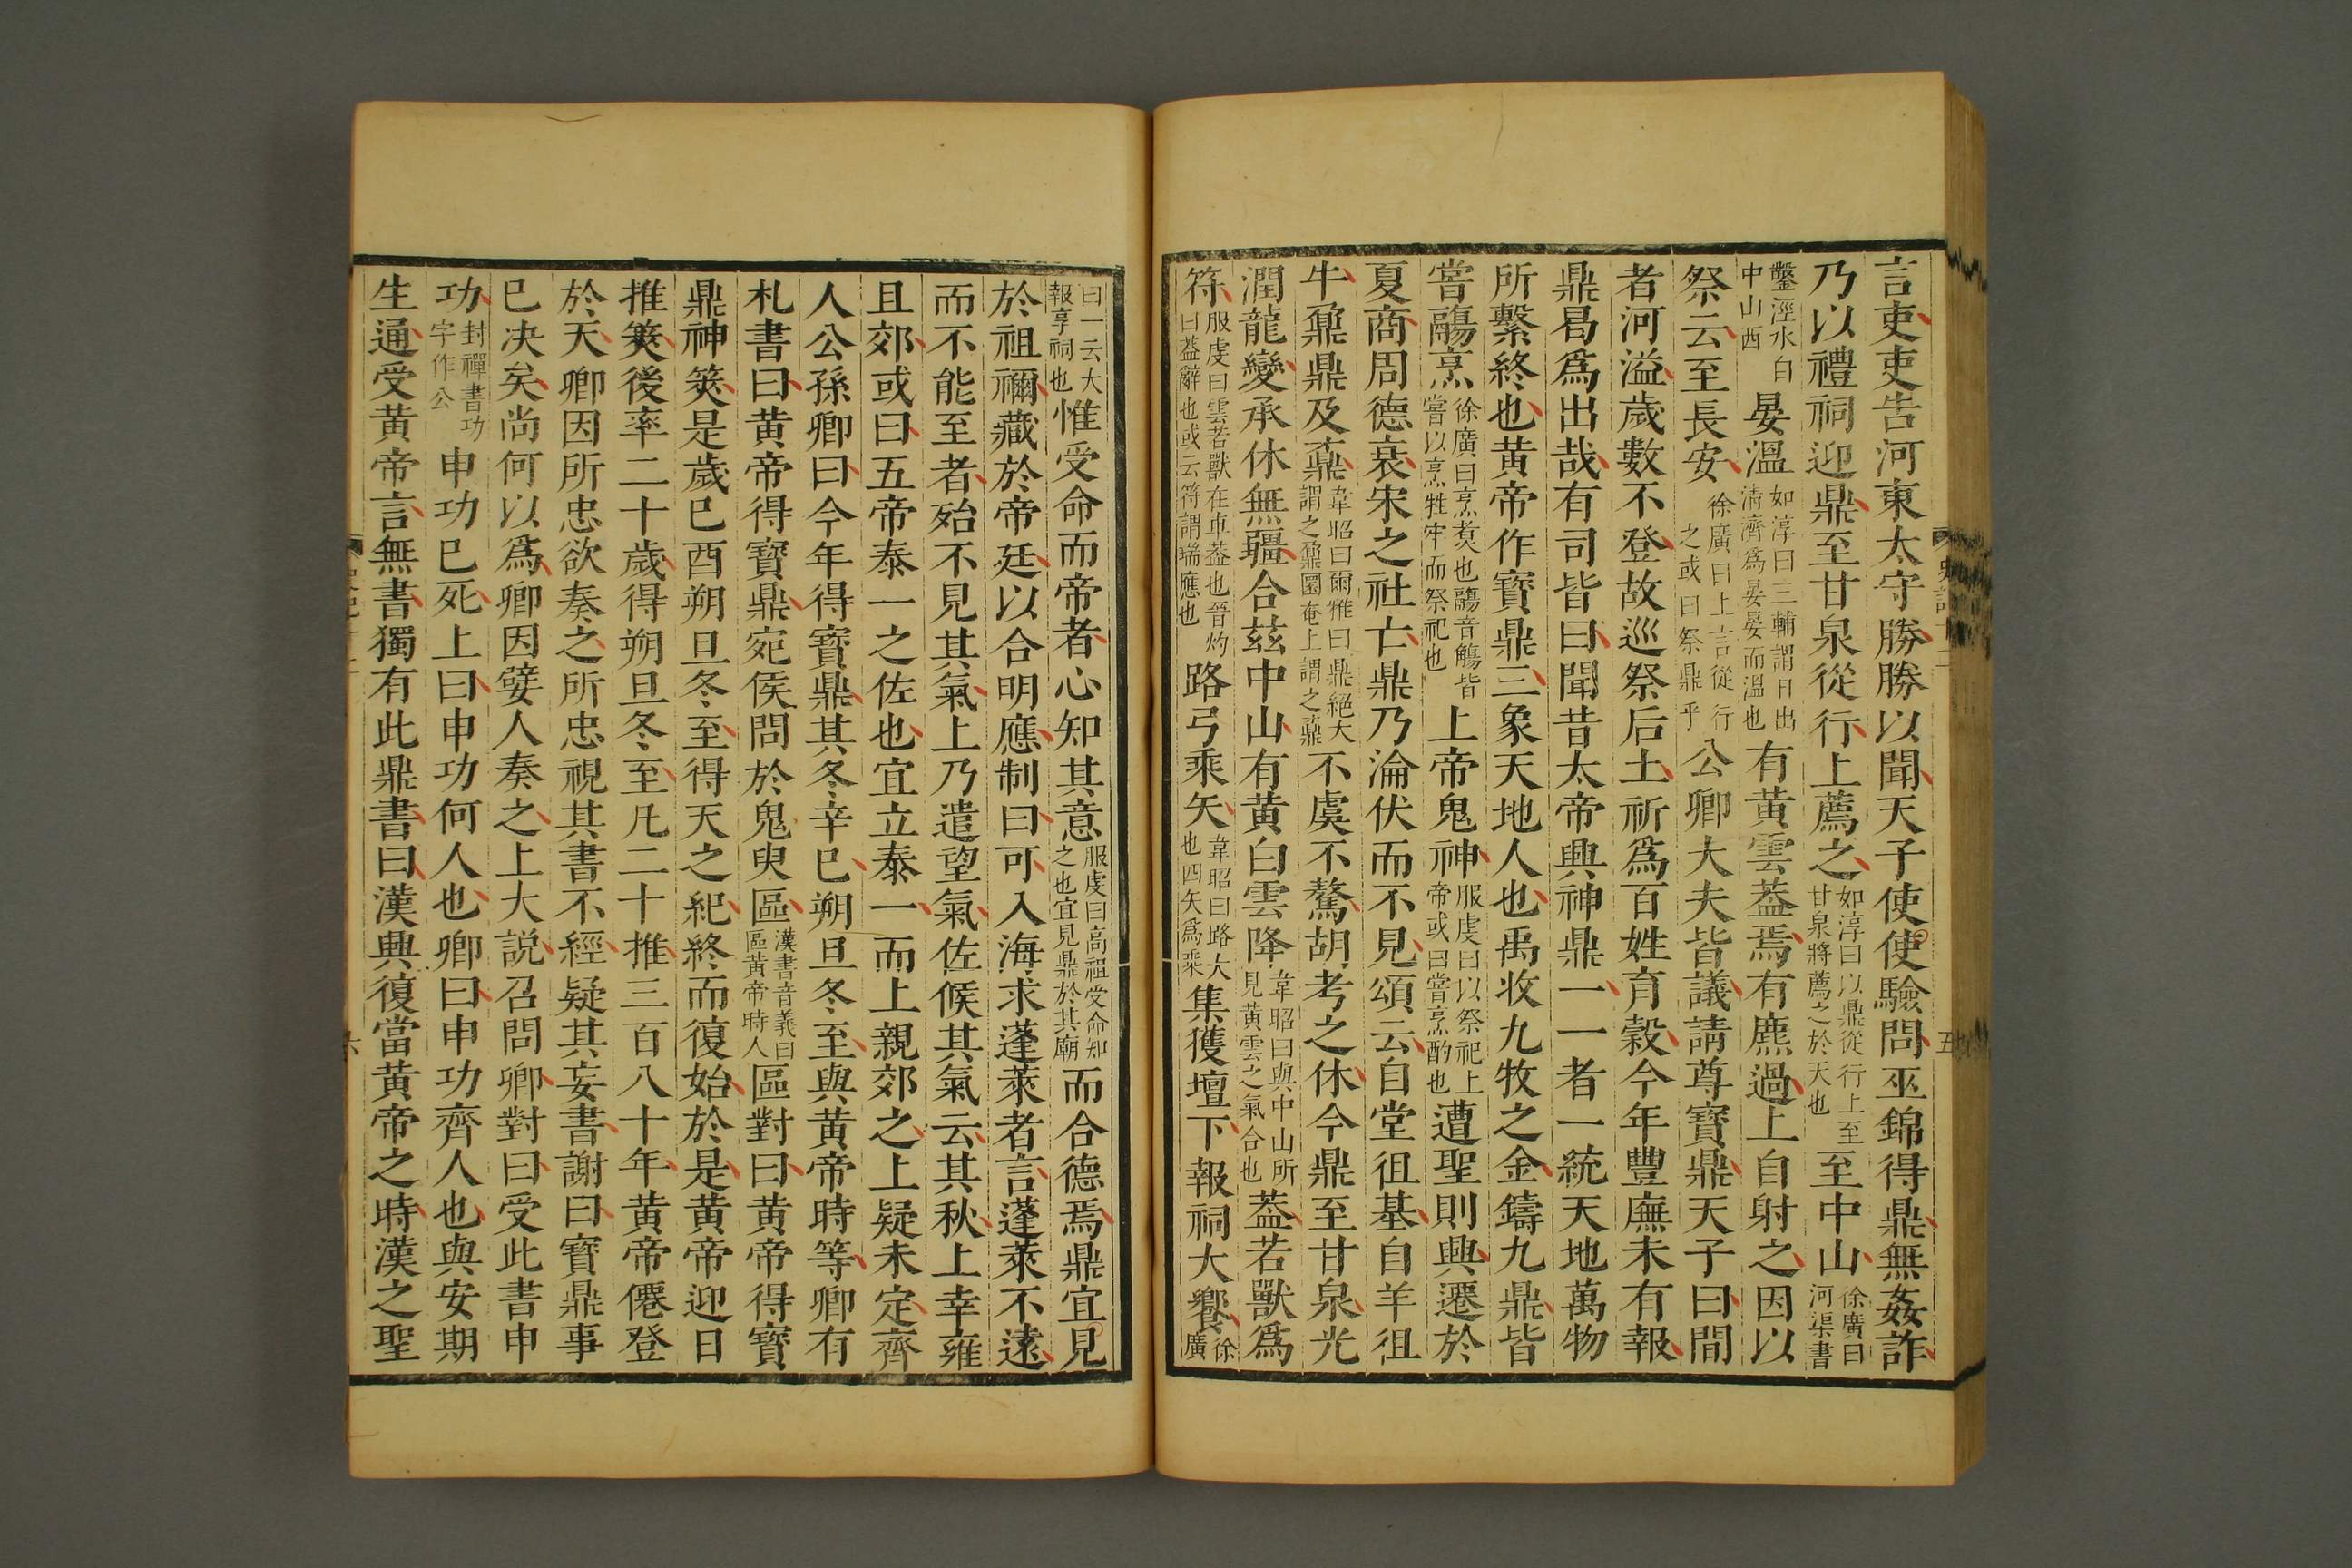 言吏吏告河東太守勝勝以聞天子使使驗問巫錦得鼎無姦詐
乃以禮祠迎鼎至甘泉從行上薦之如淳曰以鼎從行上至甘泉將薦之於天也至中山徐廣曰河渠書
鑿涇水自中山西晏溫如淳曰三輔謂日出淸濟爲晏晏而溫也有黃雲蓋焉有麃過上自射之因以
祭云至長安徐廣曰上言從行之或曰祭鼎乎公卿大夫皆議請尊寶鼎天子曰間
者河溢歲數不登故巡祭后土祈爲百姓育穀今年豐廡未有報
鼎曷爲出哉有司皆曰聞昔太帝興神鼎一一者一統天地萬物
所繫終也黃帝作寶鼎三象天地人也禹收九牧之金鑄九鼎皆
嘗鬺烹徐廣曰烹煑也鬺音觴皆嘗以烹牲牢而祭祀也上帝鬼神服虔曰以祭祀上帝或曰嘗烹酌也遭聖則興遷於
夏商周德衰宋之社亡鼎乃淪伏而不見頌云自堂徂基自羊徂
牛鼐鼎及鼒韋昭曰爾雅曰鼎絕大謂之鼐圜弇上謂之鼒不虞不驁胡考之休今鼎至甘泉光
潤龍變承休無疆合茲中山有黃白雲降韋昭曰與中山所見黃雲之氣合也蓋若獸爲
符服虔曰雲若獸在車蓋也晉灼曰蓋辭也或云符謂瑞應也路弓乘矢韋昭曰路大也四矢爲乘集獲壇下報祠大饗徐廣
曰一云大報享祠也惟受命而帝者心知其意服虔曰高祖受命知之也宜見鼎於其廟而合德焉鼎宜見
於祖禰藏於帝廷以合明應制曰可入海求蓬萊者言蓬萊不遠
而不能至者殆不見其氣上乃遣望氣佐候其氣云其秋上幸雍
且郊或曰五帝泰一之佐也宜立泰一而上親郊之上疑未定齊
人公孫卿曰今年得寶鼎其冬辛巳朔旦冬至與黃帝時等卿有
札書曰黃帝得寶鼎宛侯問於鬼臾區漢書音義曰區黃帝時人區對曰黃帝得寶
鼎神筴是歲巳酉朔旦冬至得天之紀終而復始於是黃帝迎日
推筴後率二十歲得朔旦冬至凡二十推三百八十年黃帝僊登
於天卿因所忠欲奏之所忠視其書不經疑其妄書謝曰寶鼎事
巳决矣尚何以爲卿因嬖人奏之上大說召問卿對曰受此書申
功封禪書功字作公申功巳死上曰申功何人也卿曰申功齊人也與安期
生通受黃帝言無書獨有此鼎書曰漢興復當黃帝之時漢之聖